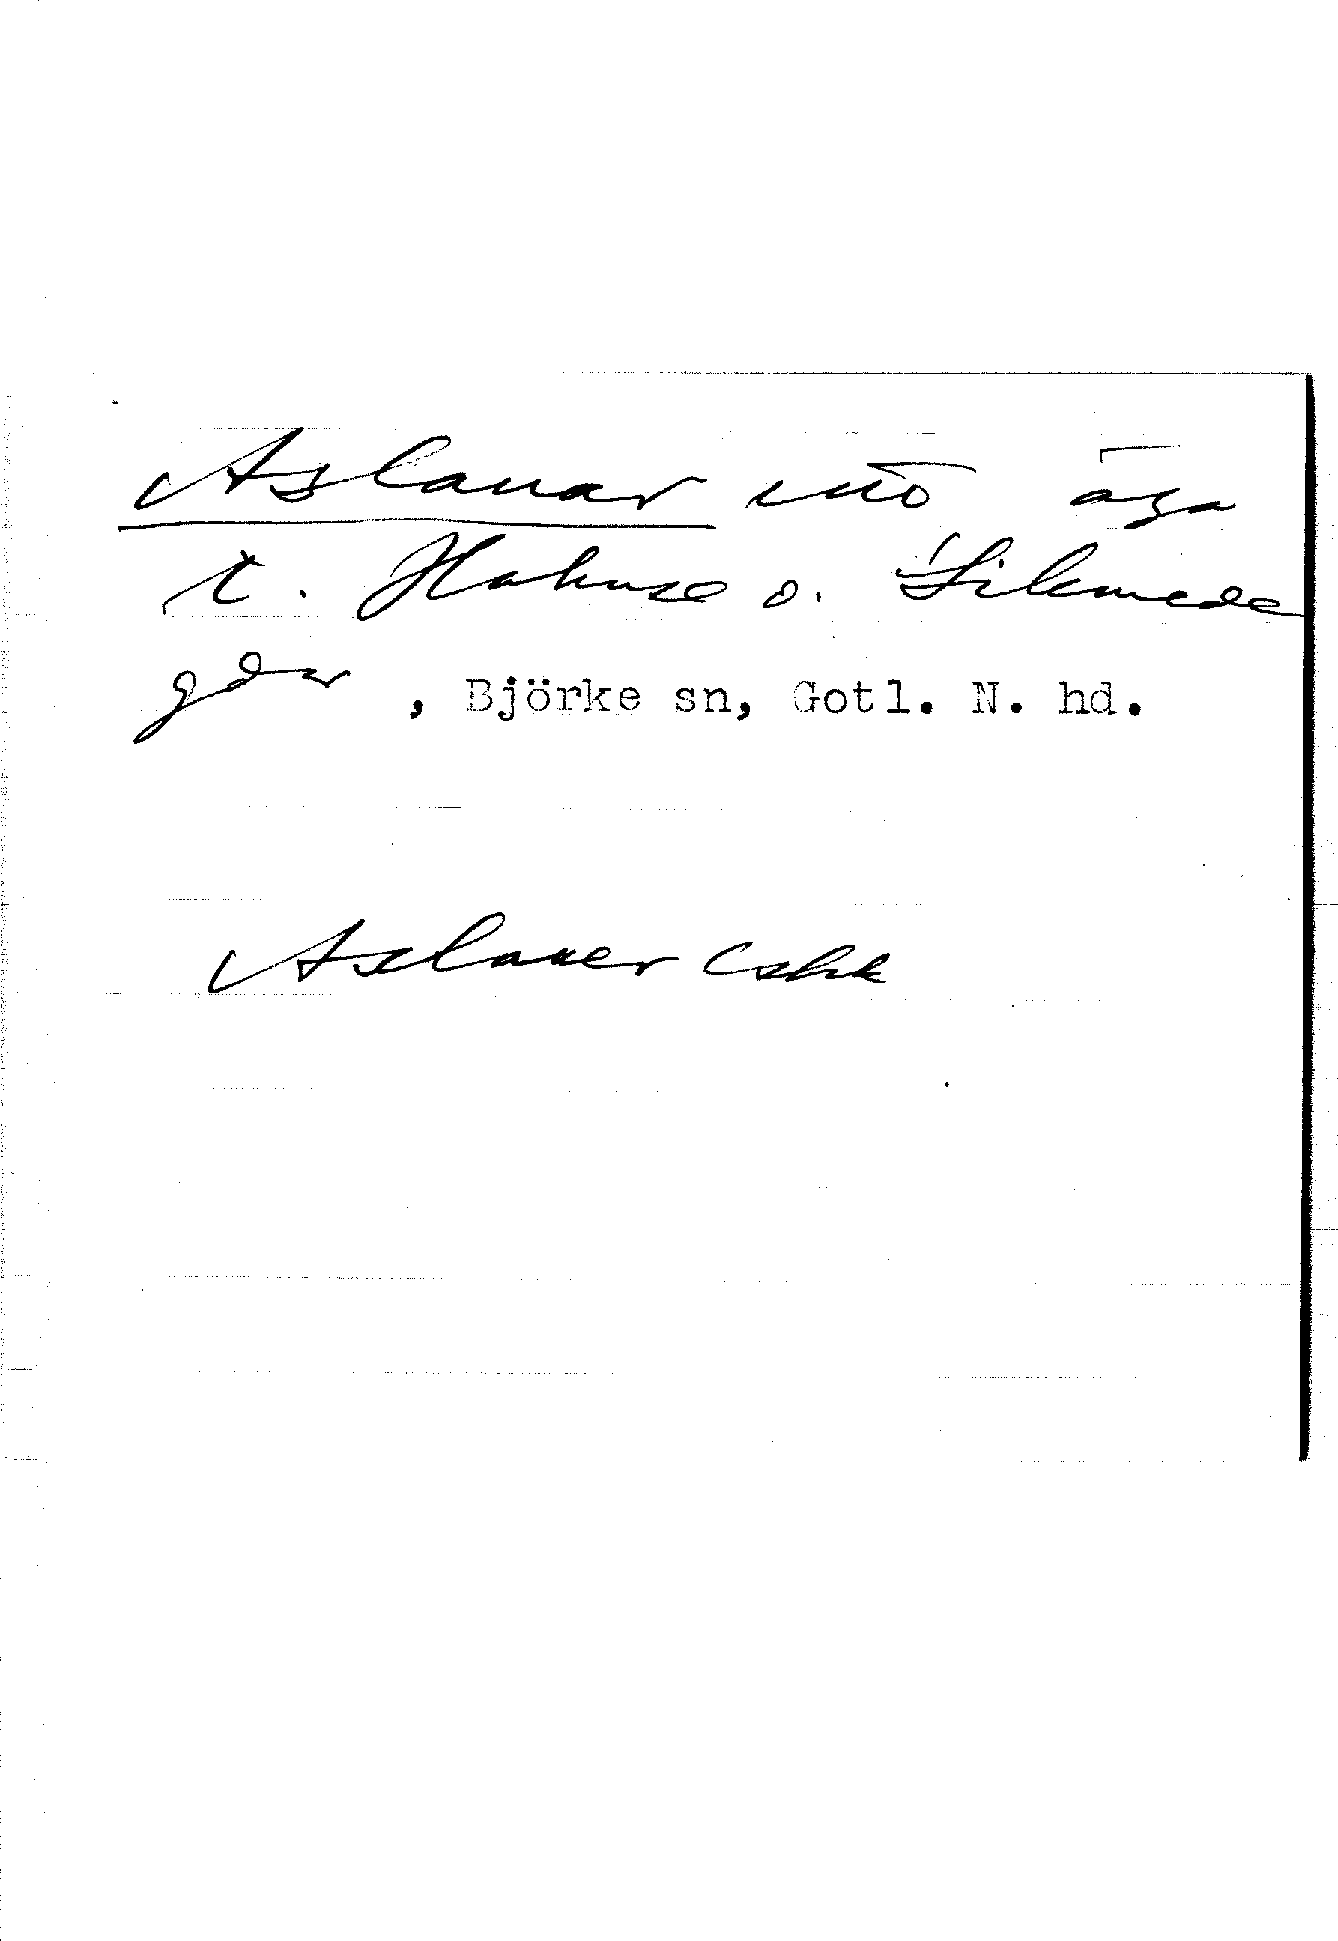 Aslanar utö äga
t. Hakuse o. Silmede
gdar, Björke sn, Gotl. N. hd.
Aslaner